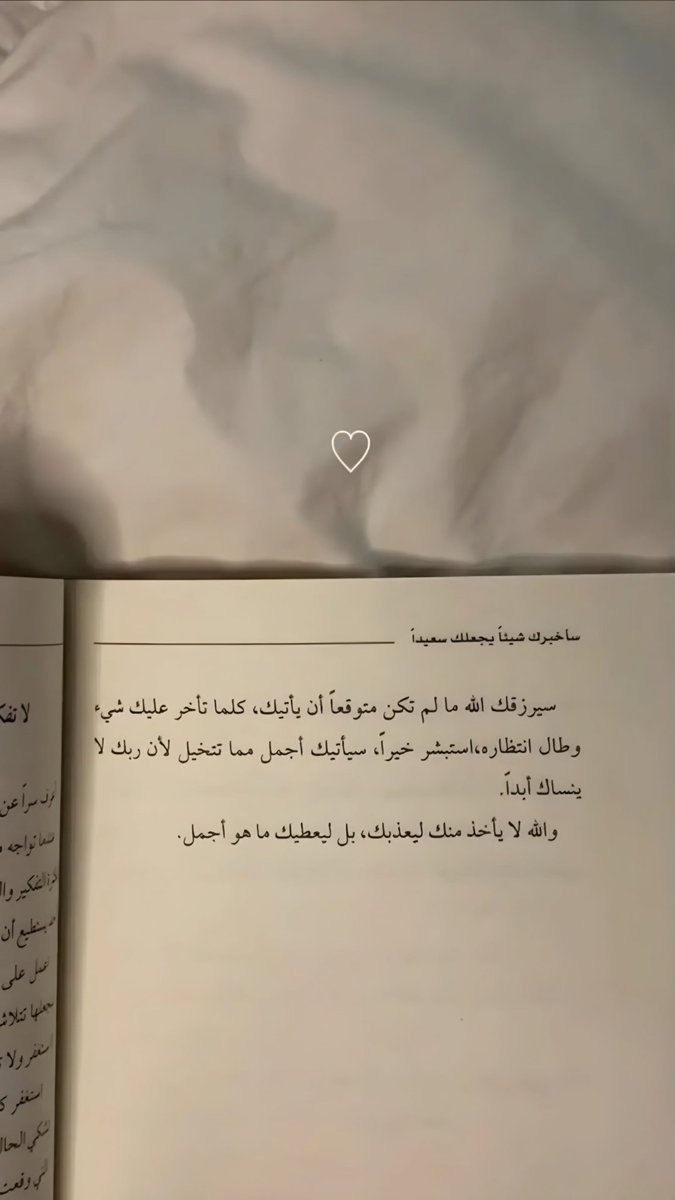 سأخبرك شيئاً يجعلك سعيداً
سيرزقك الله ما لم تكن متوقعاً أن يأتيك، كلما تأخر عليك شيء
وطال انتظاره،استبشر خيراً، سيأتيك أجمل مما تتخيل لأن ربك لا
ينساك أبداً.
والله لا يأخذ منك ليعذبك، بل ليعطيك ما هو أجمل.
لا
سراً عن
تواجه
التفكير
أن
على
ولا
استغفر
وقعت